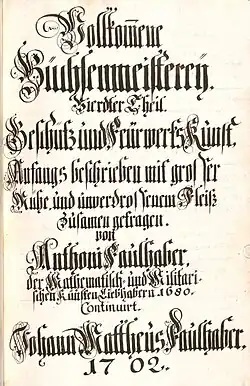 Vollkom̄ene
Büchsenmeisterey.
Vierdter Theil.
Geschütz und Feürwerks Kunst,
Anfangs beschrieben mit großer
Mühe, und ůnverdroßenem Fleiß
Zůsamen getragen.
von
Anthoni Faulhaber,
der Mathematisch- und Militari-
schen Künsten Liebhabern 1680.
Continuirt.
Johann Mattheus Faulhaber.
1702.